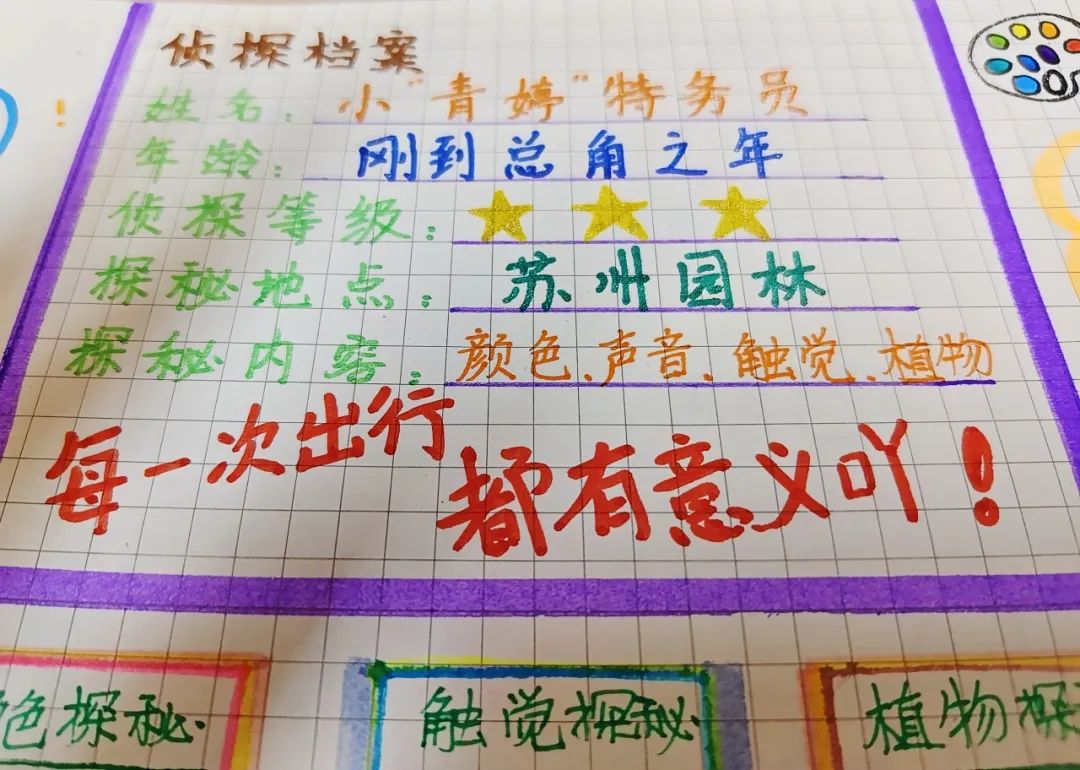 侦探档案
姓名：小“青婷”特务员
年龄：刚到总角之年
侦探等级：
探秘地点：苏州园林
探秘内容：颜色、声音、触觉、植物
每一次出行
都有意义吖！
色探秘
触觉探秘
植物探